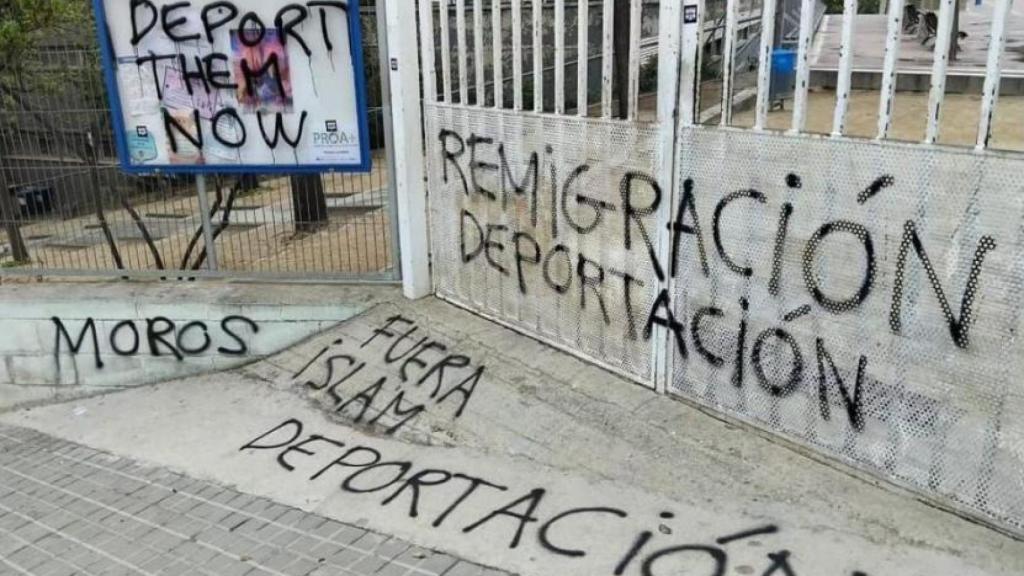 DEPORT
THEM
NOW
PROA+
REMIGRACIÓN
DEPORTACIÓN
MOROS
FUERA
ISLAM
DEPORTACIÓN